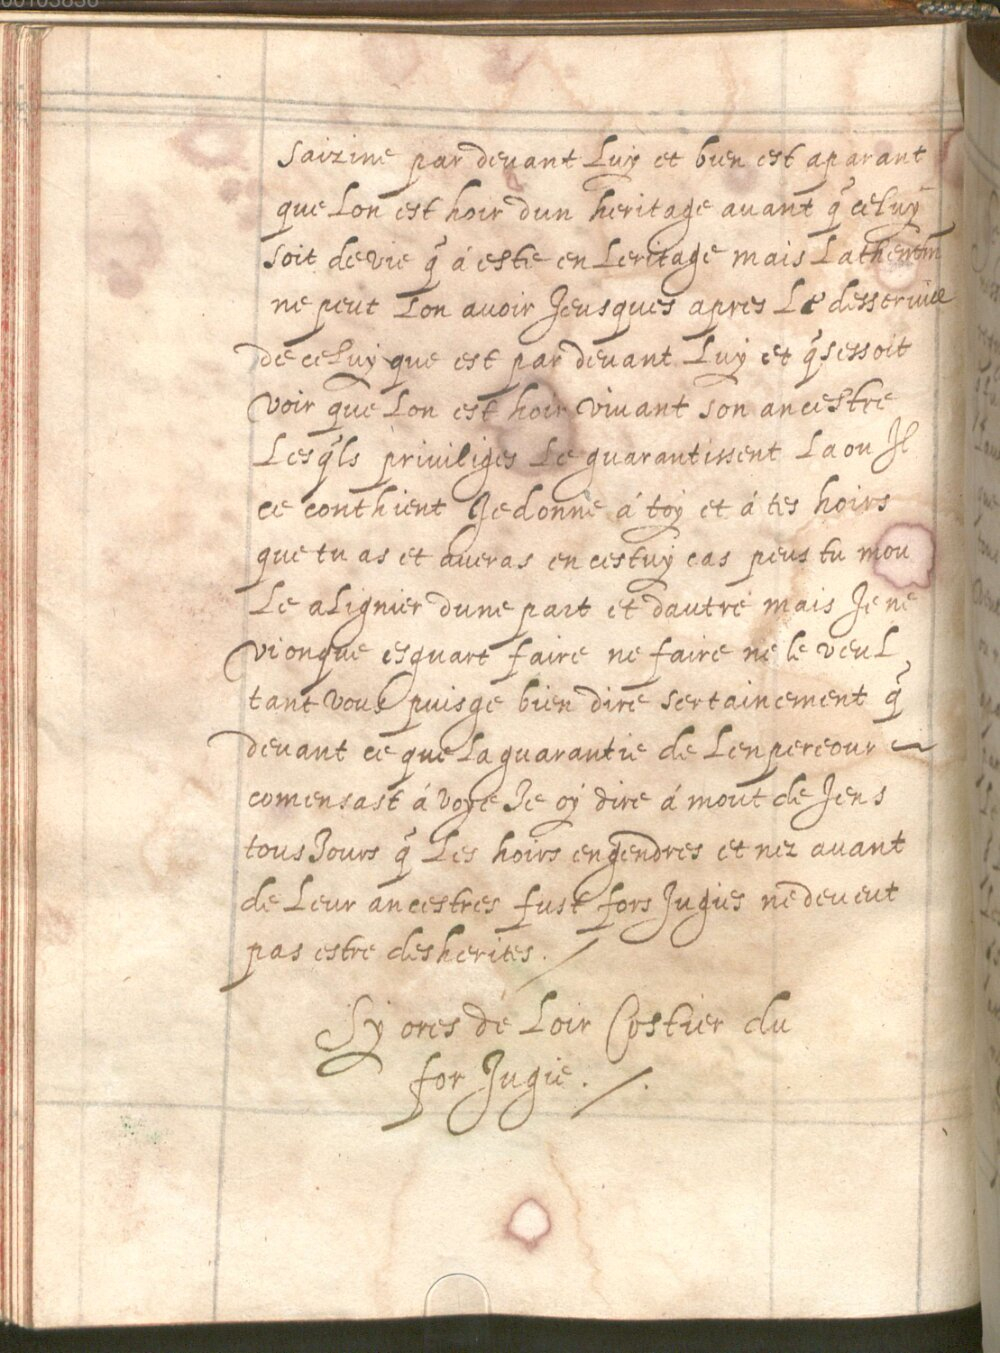 saizine par devant Luy et bien est aparant
que Lon est hoir dun heritage avant q̃ celuy
soit devie q̃ á este en Leritage mais
ne peut Lon avoir Jeusques apres Le desservice
de celuy que est par devant Luy et q̃ sessoit
voir que Lon est hoir vivant son ancestre
Lesq̃ls priviliges Le guarantissent La ou Jl
ce conthient Je donne á toy et á tes hoirs
que tu as et averas en cestuy cas peus tu mou
Le alignier dune part et dautre mais Je ne
vi onque esguart faire ne faire ne le veul
tant vous puisge bien dire sertainement q̃
devant ce que La guarantie de Lenpereour
comensast á voye Je oy dire á mout de Jens
tous Jours q̃ Les hoirs engendres et nez avant
de Leur ancestres fust fors Jugies ne devent
pas estre desherites.
Sy ores de Loir Costier du
for Jugie.